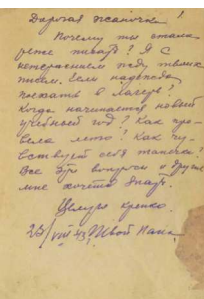 Дорогая Жанночка!
Почему ты стала
реже писать? Я с
нетерпением жду твоих
писем. Если надоело
поехать в лагерь?
Когда начинается новый
учебный год? Как про-
вела лето? Как чу-
вствует себя мамочка?
Все эти вопросы и другие
мне хочется знать.
Целую крепко.
23/VIII 43. Твой папа